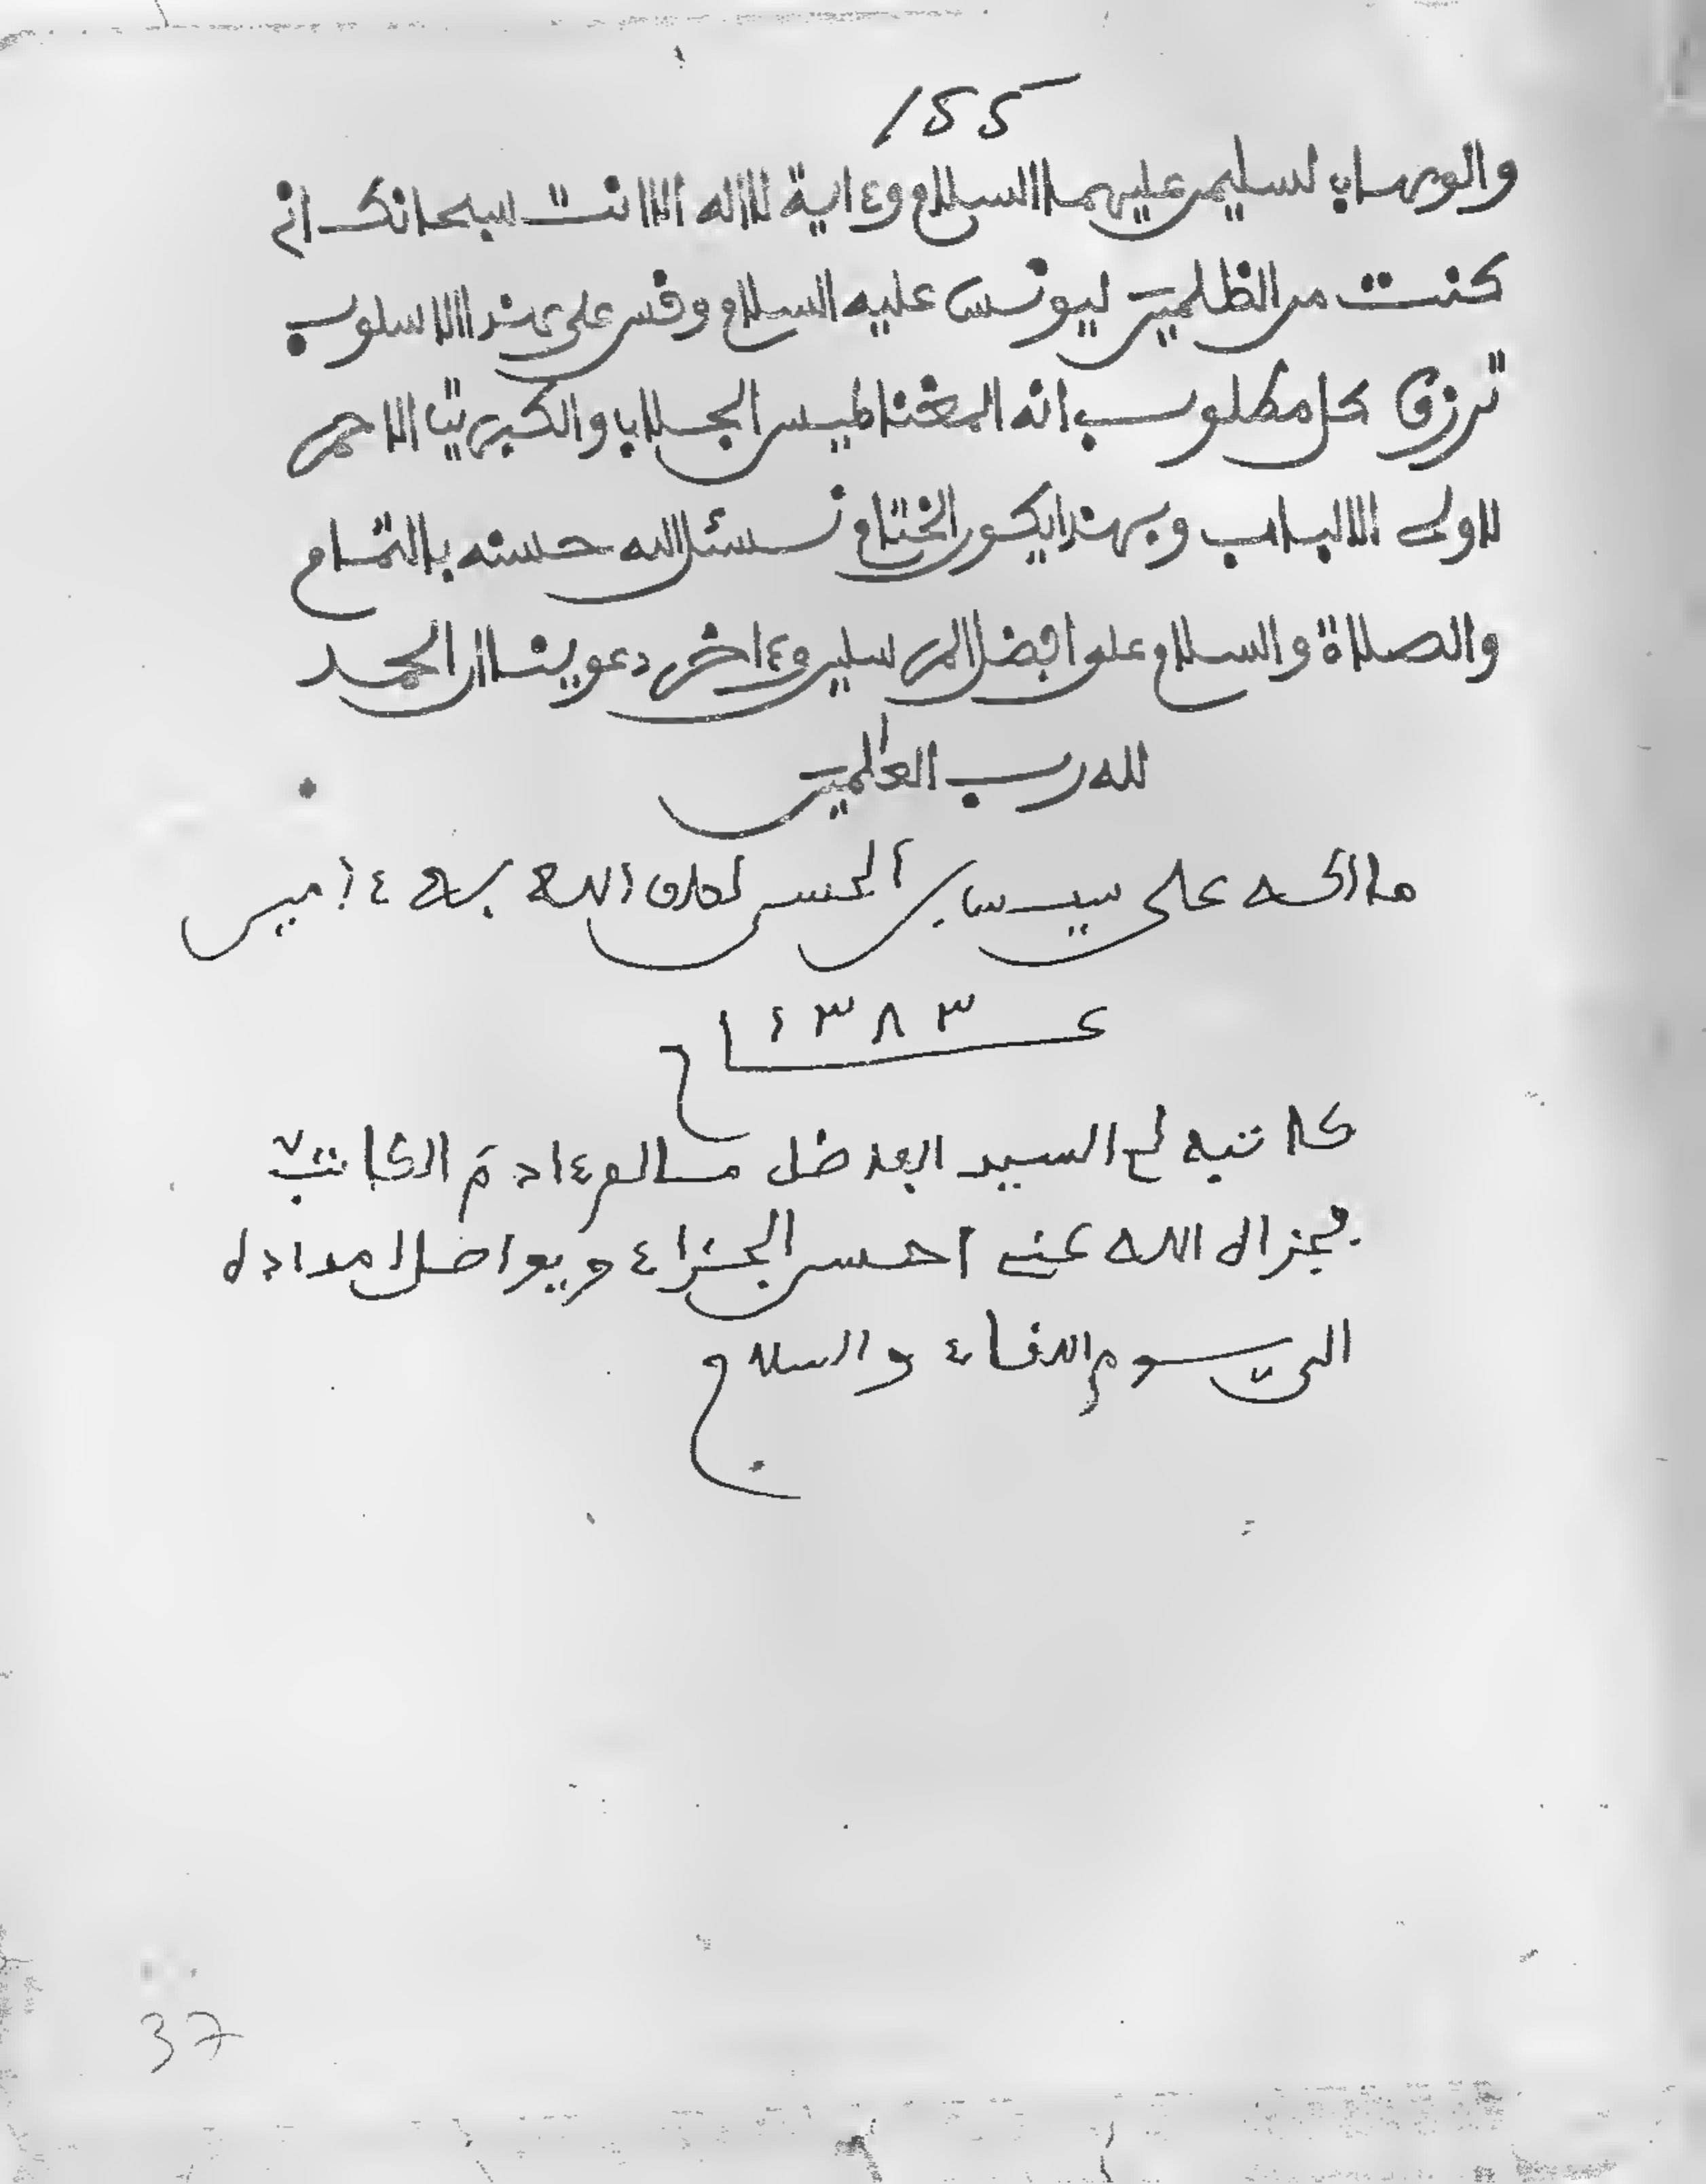 155
والوهاب لسليمن عليهما السلام وءاية لا اله الا انت سبحانك اني
كنت من الظلمين ليونس عليه السلام وقس على هذا الاسلوب
ترزق كل مطلوب انه المغناطيس الجلاب والكبريت الاحمر
لاولى الالباب وبهذا يكون الختام نسئل الله حسنه بالتمام
والصلاة والسلام على افضل المرسلين وءاخر دعوينا ان الحمد
لله رب العالمين
مالكه على سيس بن الحسن لطف الله به ءامين
عـام ١٣٨٣
كاتبه لي السيد الفاضل سالم ءادم الكاتب
فجزاه الله عني احسن الجزاء ويواصل امداده
الى يوم اللقاء والسلام
37